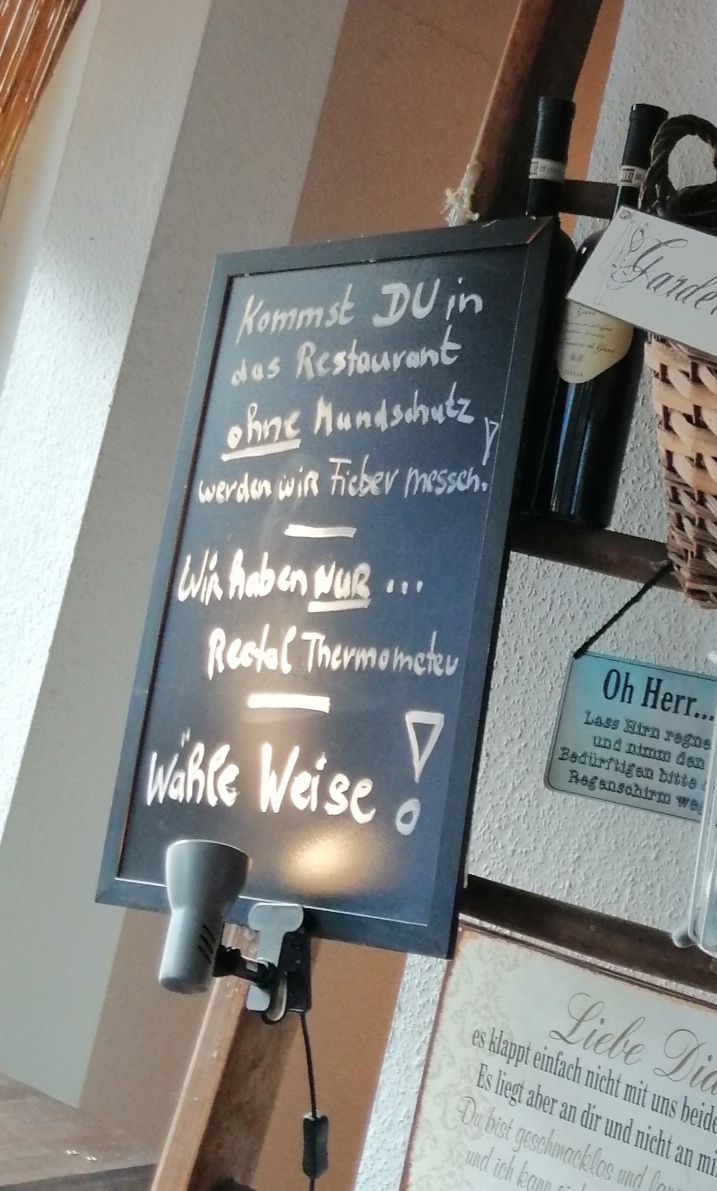 Kommst DU in
das Restaurant
ohne Mundschutz
werden wir Fieber messen!
Wir haben NUR ...
Rectal Thermometer
Wähle Weise!
Garde
ITALIA
Oh Herr...
Lass Hirn regne
und nimm den
Bedürftigen bitte
Regenschirm we
Liebe Diä
es klappt einfach nicht mit uns beide
Es liegt aber an dir und nicht an mi
Du bist geschmacklos und lan
und ich kann ein